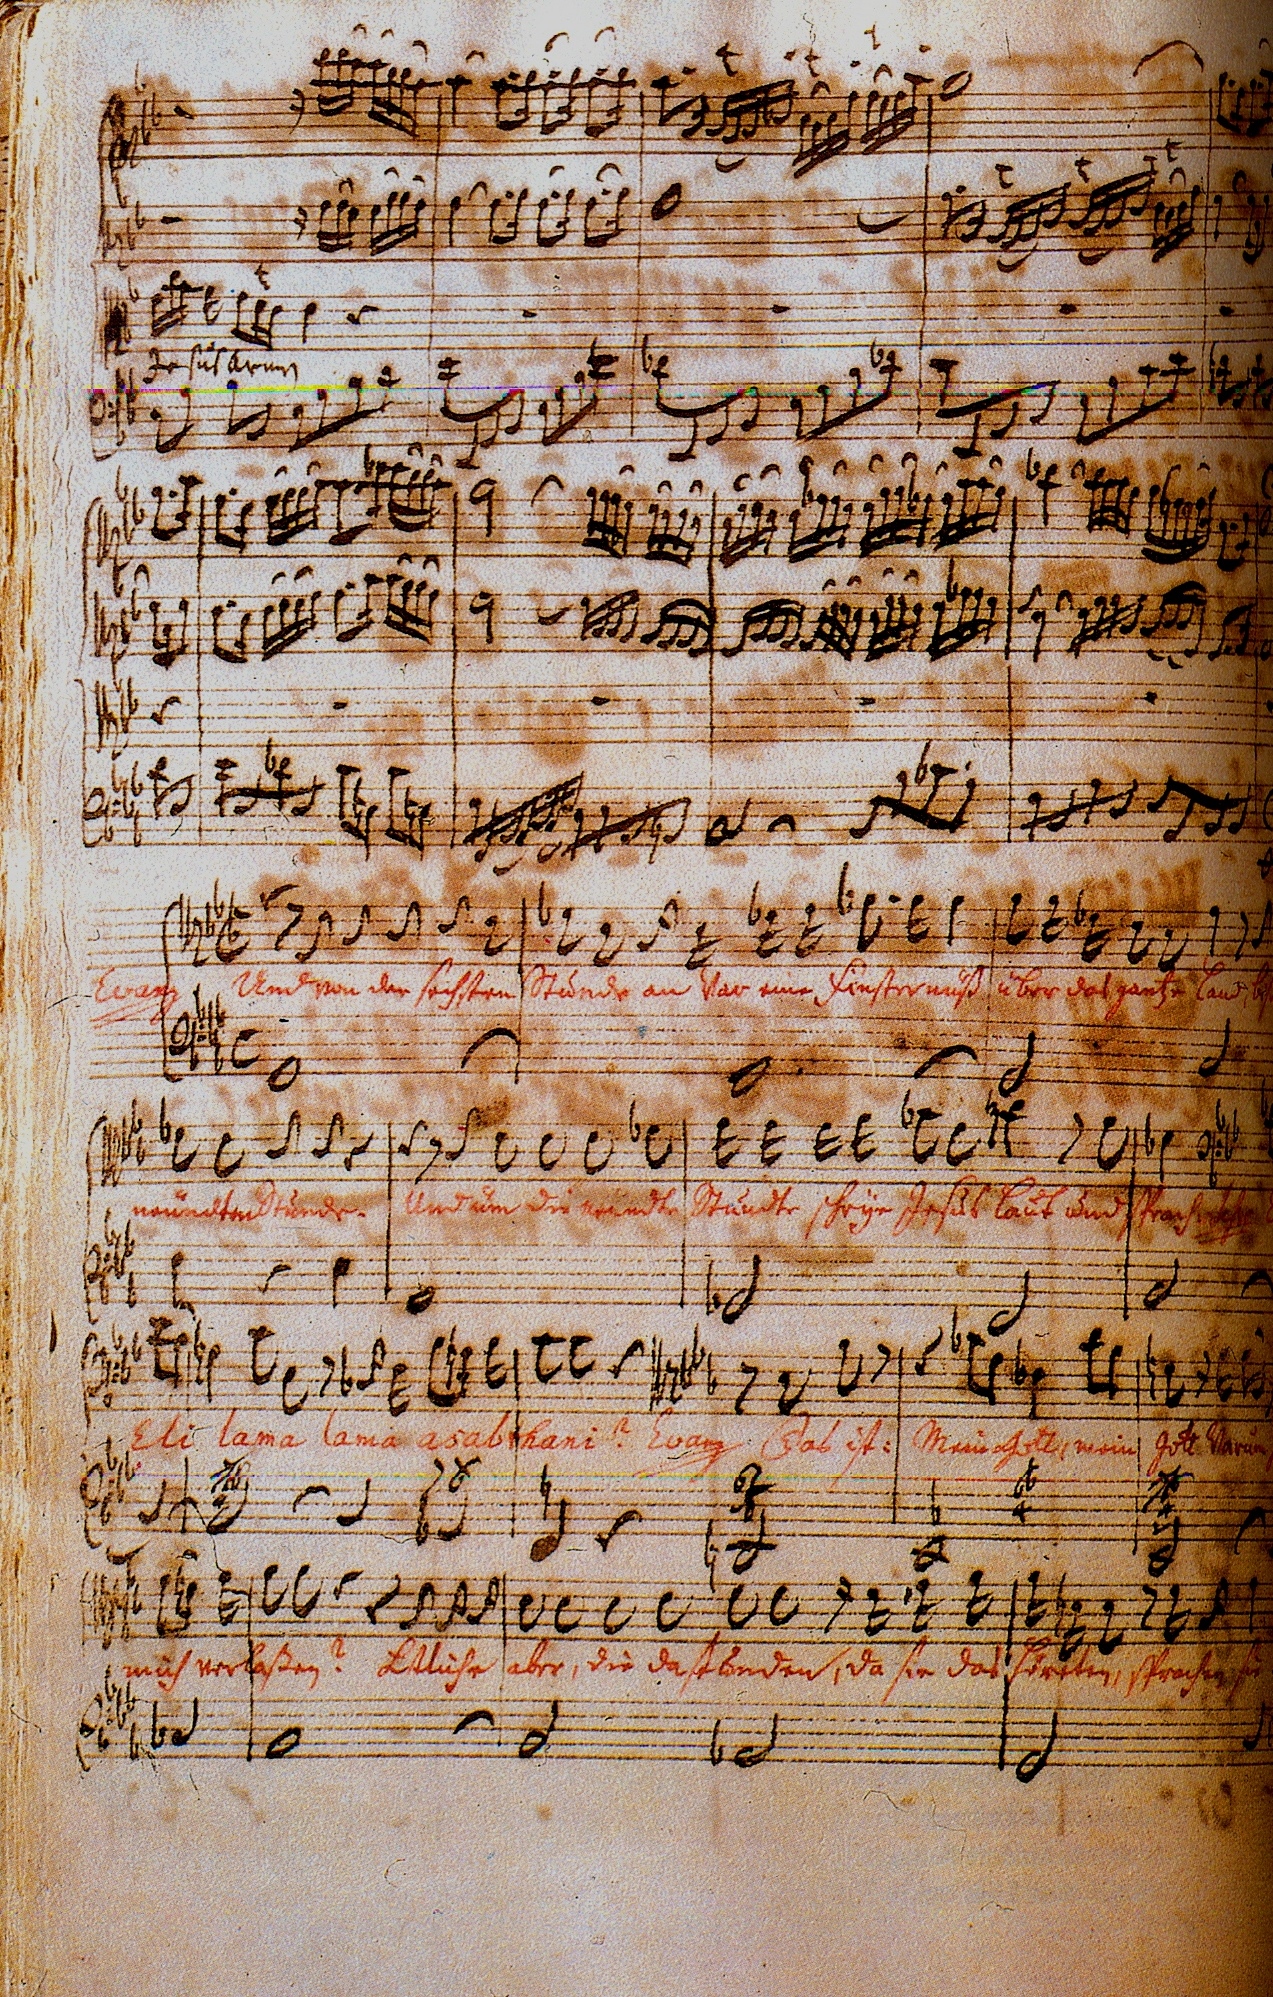 Jesus Armen
Evang Und von der sechsten Stunde an war eine Finsternüß über das gantze Land, biß
neundten Stunde. Und um die neundte Stunde schrye Jesus laut und sprach
Eli lama lama asabthani? Evang Das ist: Mein Gott, mein Gott warum
mich verlaßen? Etliche aber, die da stunden, da sie das höreten, sprachen sie